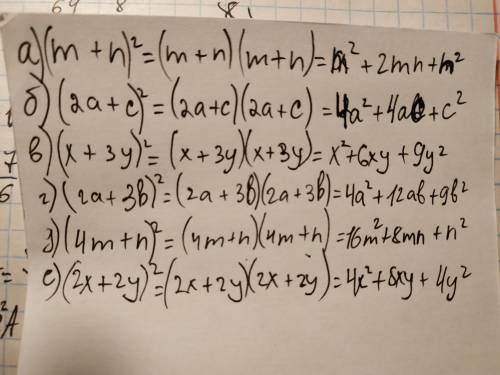 а) (m + n)² = (m + n) (m + n) = m² + 2mn + n²
б) (2a + c)² = (2a + c)(2a + c) = 4a² + 4ac + c²
в) (x + 3y)² = (x + 3y)(x + 3y) = x² + 6xy + 9y²
г) (2a + 3b)² = (2a + 3b)(2a + 3b) = 4a² + 12ab + 9b²
д) (4m + n)² = (4m + n)(4m + n) = 16m² + 8mn + n²
е) (2x + 2y)² = (2x + 2y)(2x + 2y) = 4x² + 8xy + 4y²